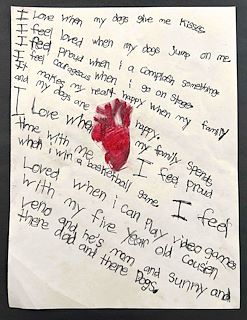 I Love when my dogs give me kisses.
I feel loved when my dogs Jump on me.
I feel Proud when i accomplash something
I feel courageous when i go on stage
It makes my really happy when my family
and my dogs are happy.
I Love when my family spends
time with me. I feel proud
when i win a basketball game. I feel
Loved when i can play video games
with my five year old cousien
veno and he's mom and sunny and
there dad and there Dogs.